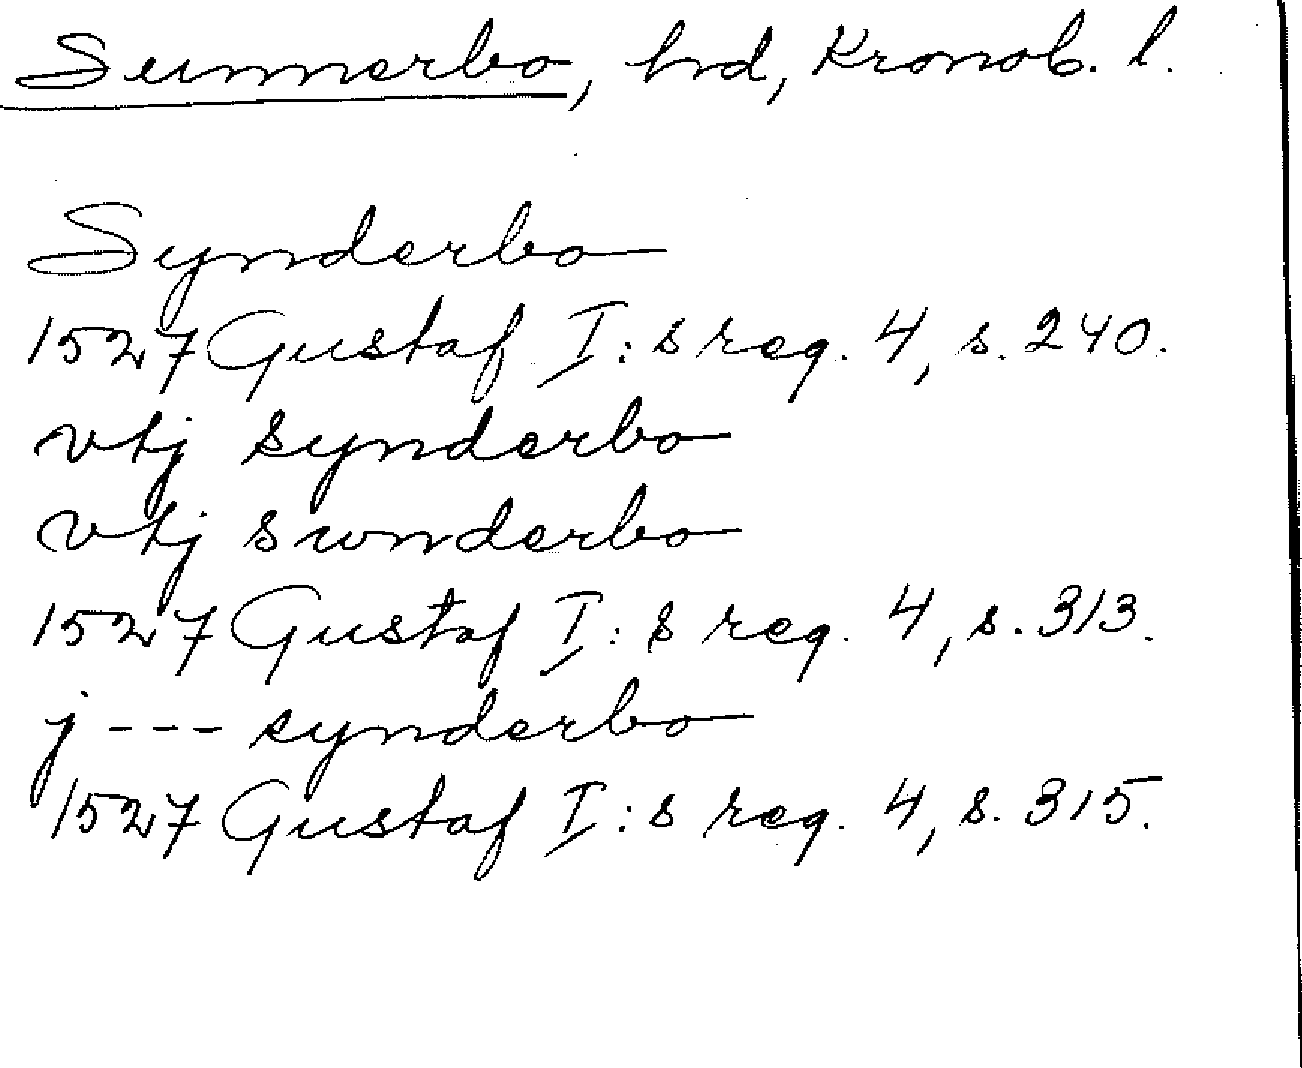 Sunnerbo, hrd, Kronob. l.
Synderbo
1527 Gustaf I:s reg. 4, s. 240.
vtj synderbo
vtj swnderbo
1527 Gustaf I:s reg. 4, s. 313.
j --- synderbo
1527 Gustaf I:s reg. 4, s. 315.